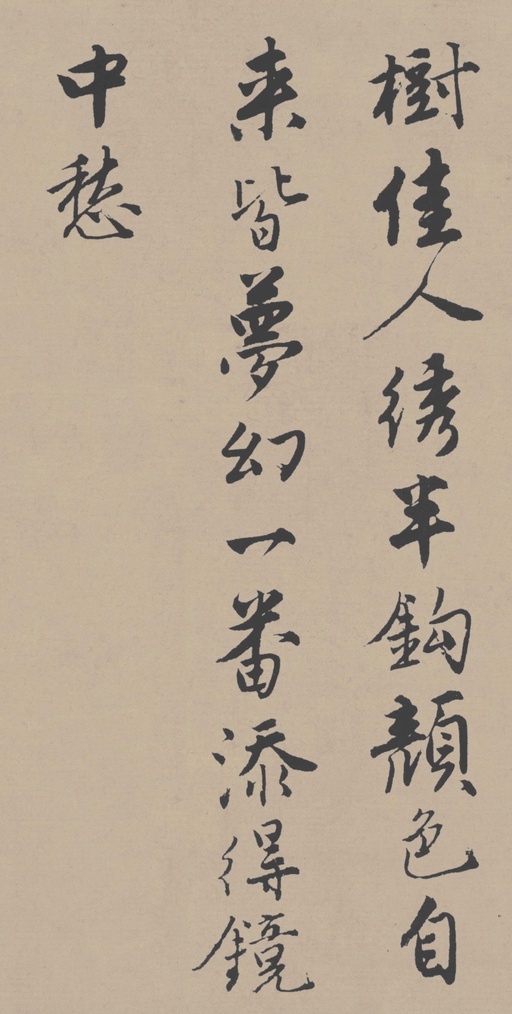 樹佳人绣半鈎顏色自
来皆夢幻一番添得鏡
中愁